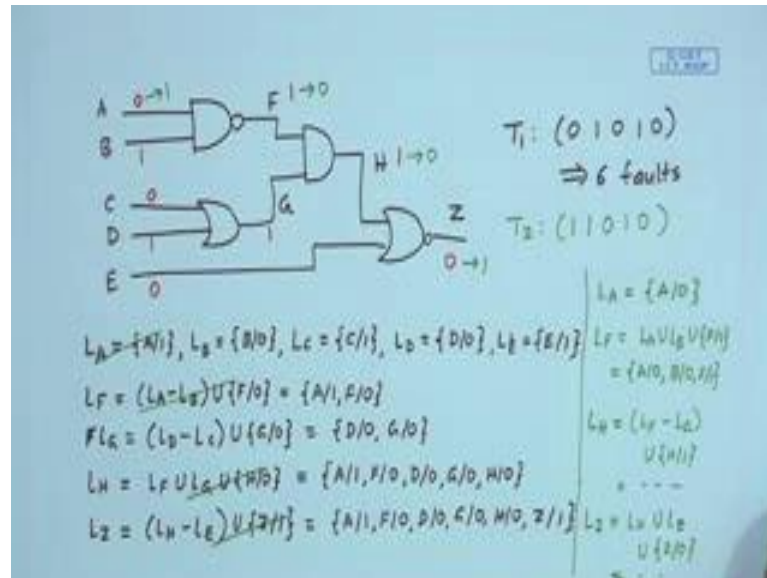 A 0→1
F 1→0
B 1
H 1→0
C 0
G
D 1
1
Z
0→1
E 0
T₁: (0 1 0 1 0)
⇒ 6 faults
T₂: (1 1 0 1 0)
L_A = {A/1}, L_B = {B/0}, L_C = {C/1}, L_D = {D/0}, L_E = {E/1}
L_F = (L_A-L_B)∪{F/0} = {A/1, F/0}
F L_G = (L_D-L_C)∪{G/0} = {D/0, G/0}
L_H = L_F ∪ L_G ∪ {H/0} = {A/1, F/0, D/0, G/0, H/0}
L_Z = (L_H-L_E)∪{Z/1} = {A/1, F/0, D/0, G/0, H/0, Z/1}
L_A = {A/0}
L_F = L_A ∪ L_B ∪ {F/1}
= {A/0, B/0, F/1}
L_H = (L_F - L_G)
∪ {H/1}
= ----
L_Z = L_H ∪ L_E
∪ {Z/0}